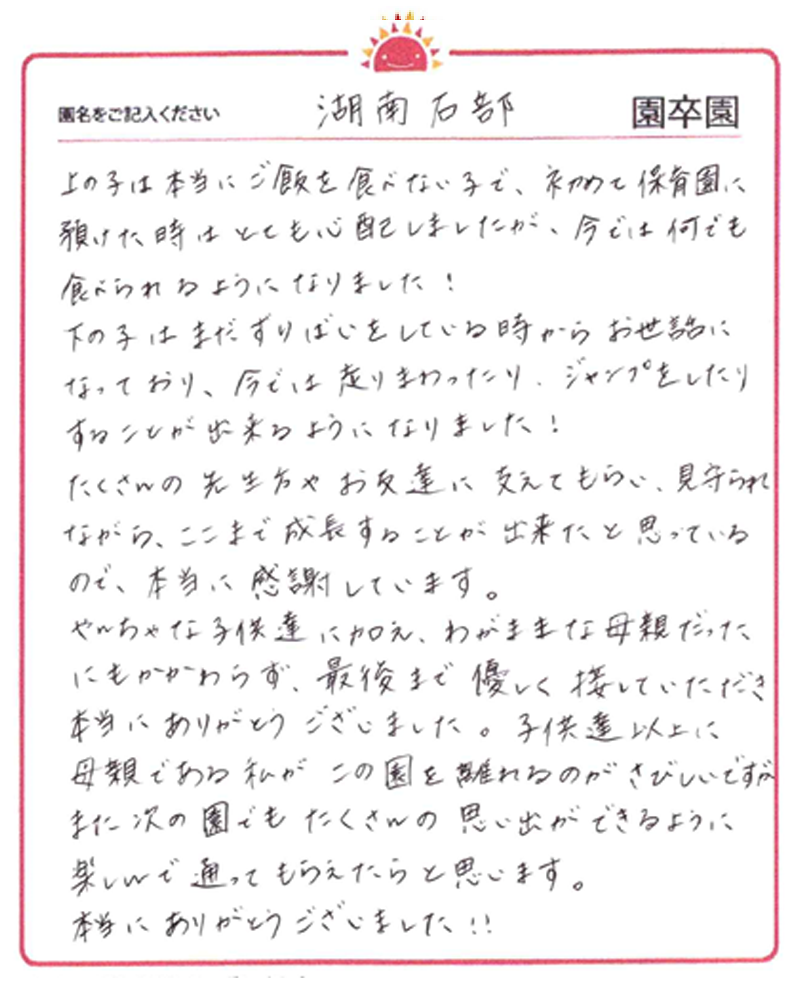 園名をご記入ください 湖南石部 園卒園
上の子は本当にご飯を食べない子で、初めて保育園に
預けた時はとても心配しましたが、今では何でも
食べられるようになりました!
下の子はまだずりばいをしている時からお世話に
なっており、今では走りまわったり、ジャンプをしたり
することが出来るようになりました!
たくさんの先生方やお友達に支えてもらい、見守られ
ながら、ここまで成長することが出来たと思っている
ので、本当に感謝しています。
やんちゃな子供達に加え、わがままな母親だった
にもかかわらず、最後まで優しく接していただき
本当にありがとうございました。子供達以上に
母親である私がこの園を離れるのがさびしいですが
また次の園でもたくさんの思い出ができるように
楽しんで通ってもらえたらと思います。
本当にありがとうございました!!